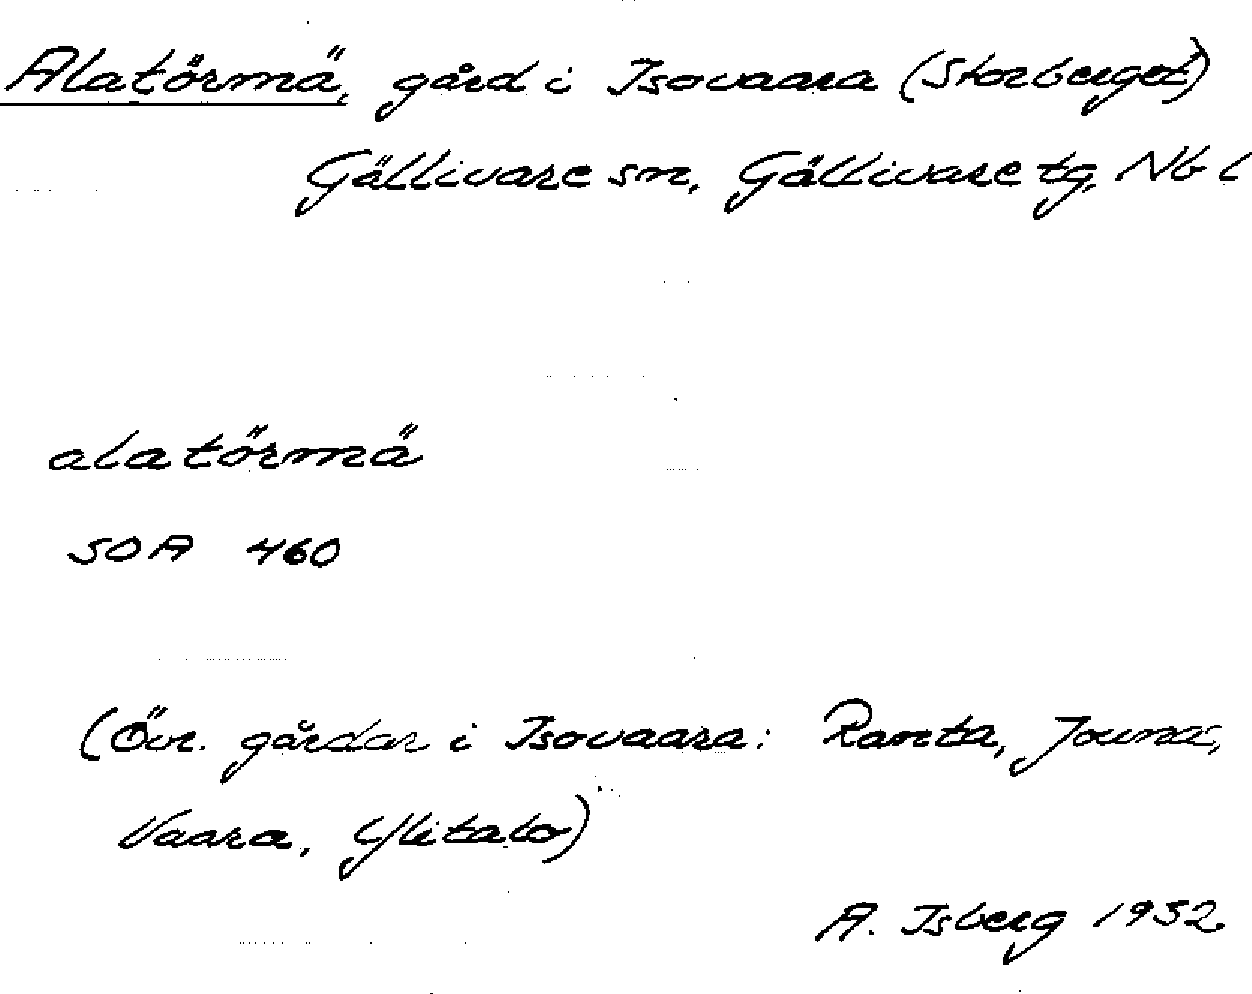 Alatörmä, gård i Isovaara (Storberget)
Gällivare sn, Gällivare tg, Nb l
alatörmä
SOA 460
(Övr. gårdar i Isovaara: Ranta, Jouna,
Vaara, Ylitalo)
A. Isberg 1932